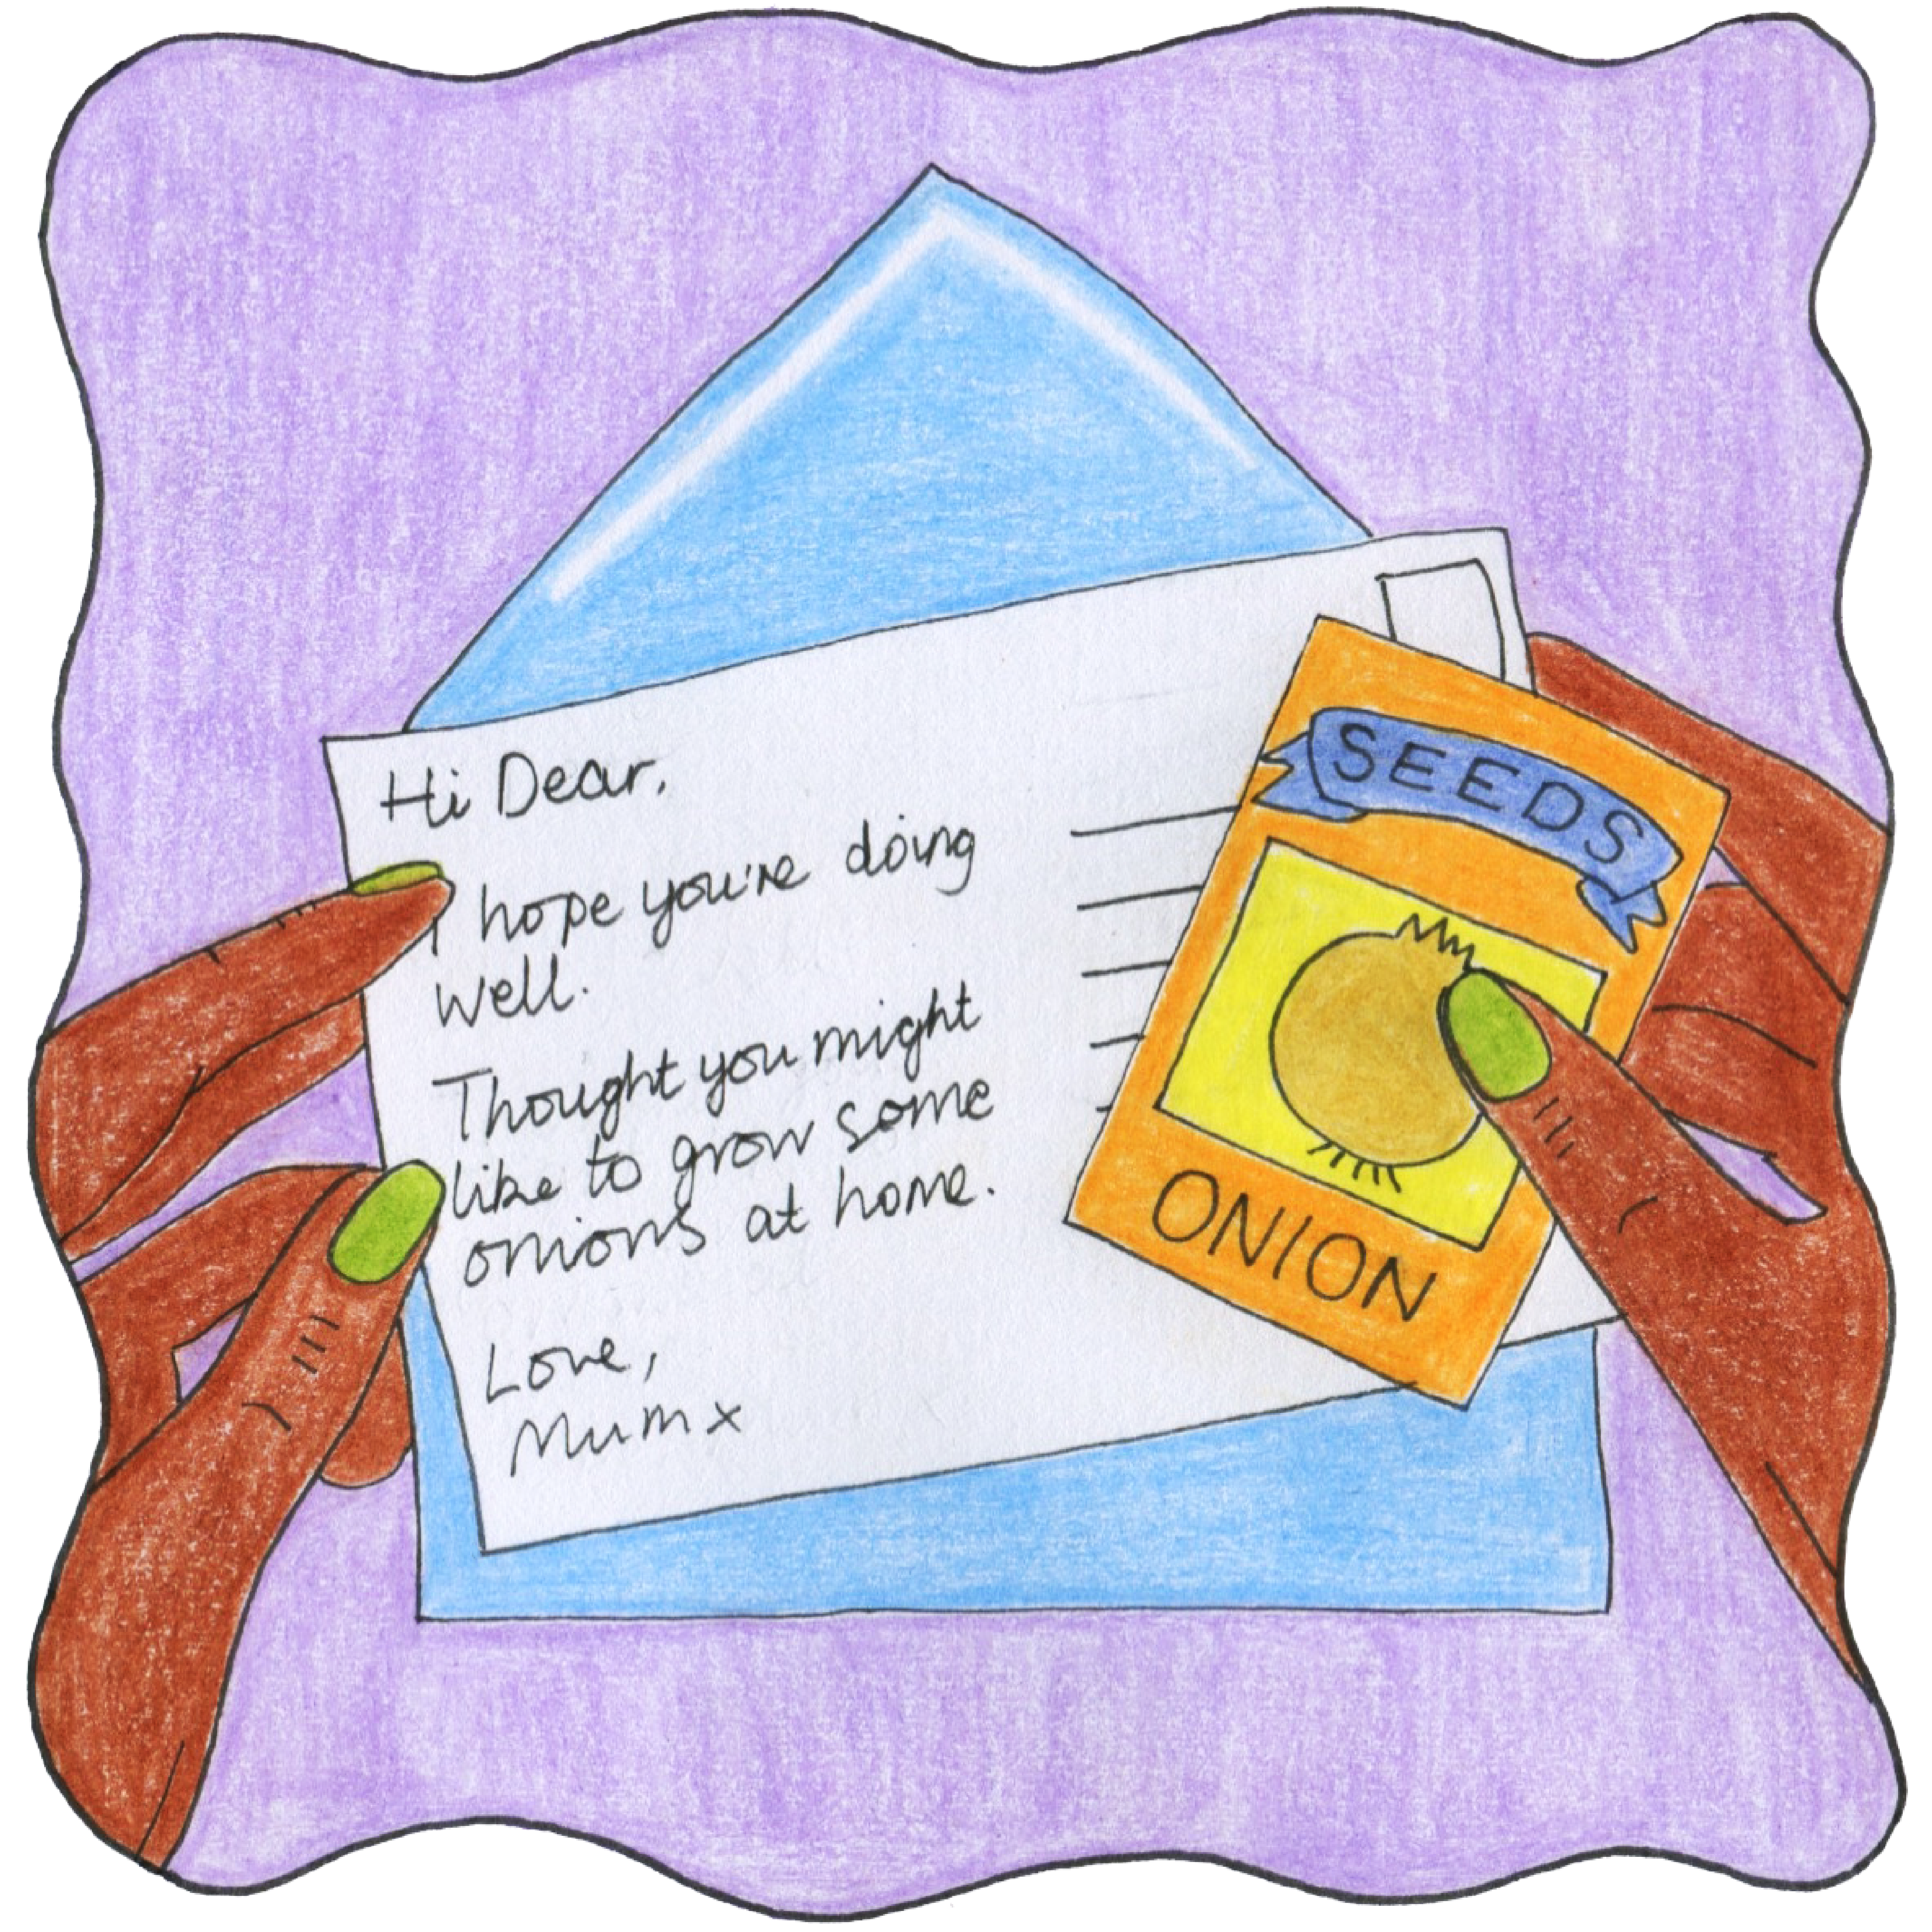 Hi Dear,
I hope you're doing
well.
Thought you might
like to grow some
onions at home.
Love,
Mum x
SEEDS
ONION